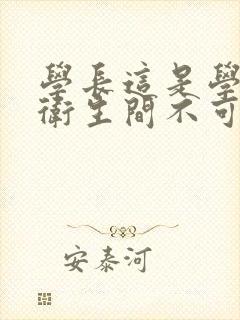 學長這是學
衛生間不可
安泰河